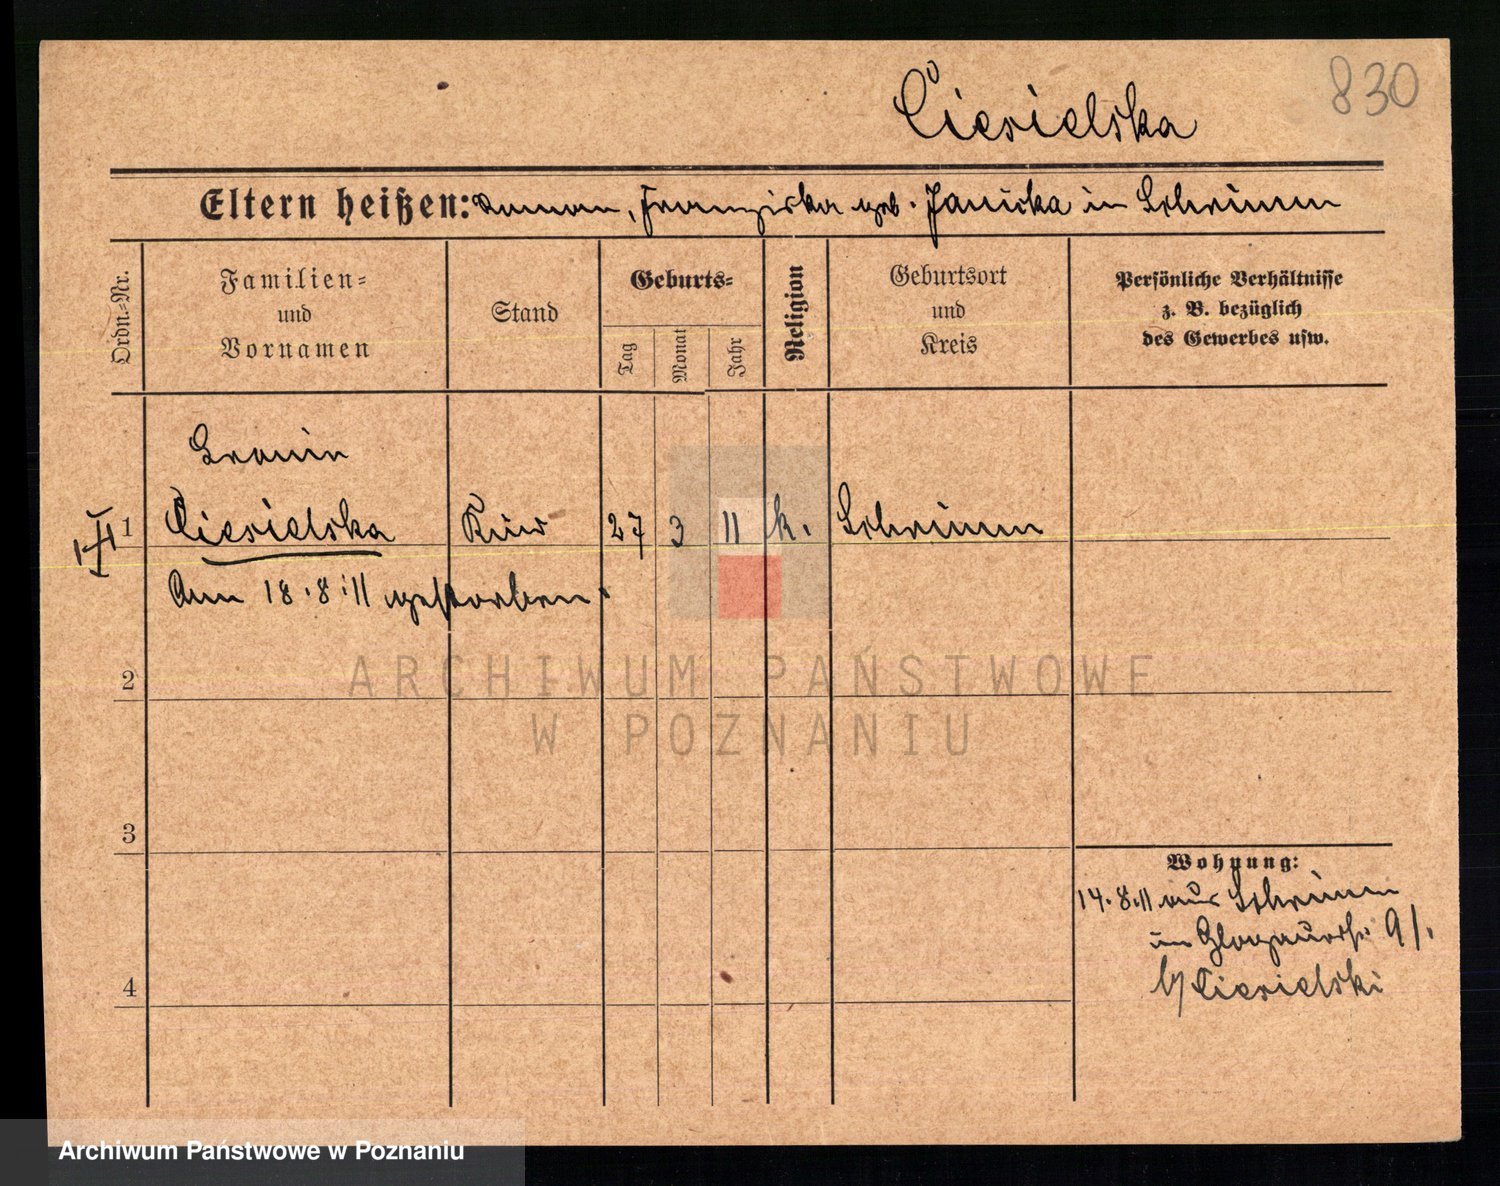 830
Ciesielska
Eltern heißen: Roman, Franziska geb. Janicka in Schrimm
Ordn.-Nr.
Familien-
und
Vornamen
Stand
Geburts-
Tag
Monat
Jahr
Religion
Geburtsort
und
Kreis
Persönliche Verhältnisse
z. B. bezüglich
des Gewerbes usw.
1
Ciesielska
Kind
27
3
11
k.
Schrimm
Am 18.8.11 gestorben.
2
3
4
Wohnung:
14.8.11 aus Schrimm
in Glogauerstr. 91.
b/ Ciesielski
ARCHIWUM PAŃSTWOWE
W POZNANIU
Archiwum Państwowe w Poznaniu